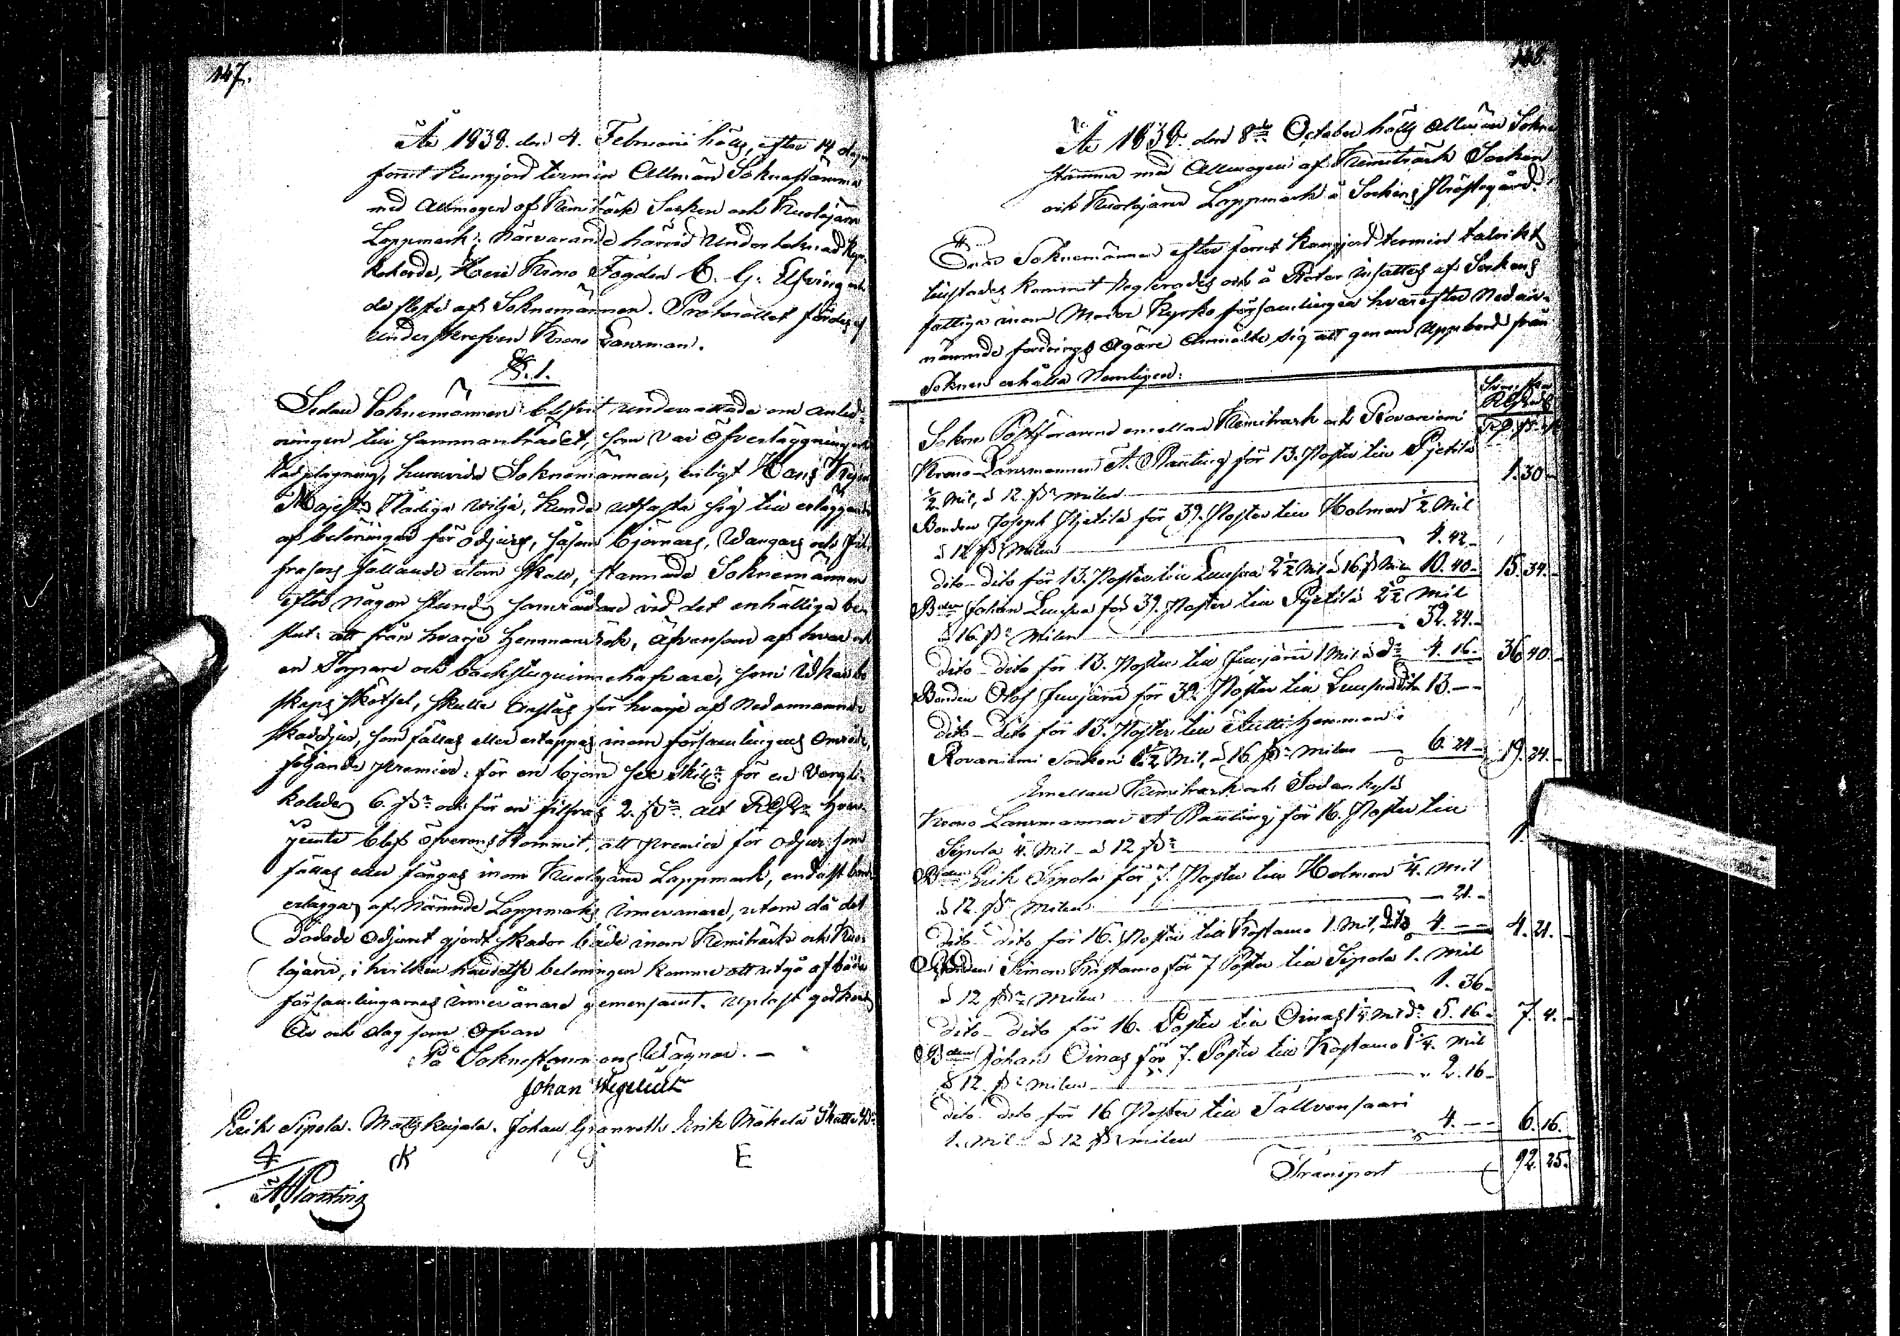 147.
År 1838. den 4. Februarii hölls, efter 14 dagar
förut kungjord termin Allmän Soknestämma
med Allmogen af Kemiträsk Socken och Kuolajärvi
Lappmark; närvarande härvid Undertecknad Kyr-
koherde, Herr Krono Fogden C. G. Elfving och
de flesta af Soknemännen. Protocollet fördes af
underskrefven Krono Länsman.
§. 1.
Sedan Soknemännen blifvit underrättade om anled-
ningen till sammanträdet, som var öfverläggning och
rådplägning, huruvida Soknemännen, enligt Hans Kejserl.
Majestts Nådiga vilja, kunde utfästa sig till erläggande
af belöningar för odjurs, såsom björnars, Wargars och fil-
frasars fällande utom skall, stannade Soknemännen
efter någon stunds samråd vid det enhälliga be-
slut: att från hvarje hemmansrök, äfvensom af hvar och
en Torpare och backstuguinnehafvare, som idkar bo-
skaps skötsel, skulle bestås för hvarje af nedannämnde
skadedjur, som fällas eller ertappas inom församlingens område,
följande premier: för en björn sex skill. för en Varg li-
kaledes 6. sk. och för en filfras 2. sk. allt RGS. Hvar-
jemte blef öfverenskommit, att premier för odjur som
fällas eller fångas inom Kuolajärvi Lappmark, endast böra
erläggas af nämnde Lappmarks innevånare, utom då det
dödade odjuret gjordt skador både inom Kemiträsk och Kuo-
lajärvi, i hvilken händelse belöningen kommer att utgå af båda
församlingarnes innevånare gemensamt. Upläst godkändt
År och dag som ofvan
På Soknestämmans Wägnar. —
Johan Wegelius
Erik Sipola. Matts Kaijala. Johan Granroth Erik Mäkelä
K G E
A Planting
148.
År 1838. den 8de October hölls Allmän Sokne
stämma med Allmogen af Kemiträsk Socken
och Kuolajärvi Lappmark å Sockens Prästegård.
Soknemännen efter förut kungjord termin talrikt
tillstädes kommit reglerades och å Rotar insattes af Sockens
fattiga inom Moder Kyrko församlingen hvarefter nedan-
nämnde fordrings ägare anmälte sig att genom uppbörd från
Soknen erhålla Nemligen:
Sokne Postförarena emellan Kemiträsk och Rovaniemi
Krono Länsmannen A. Planting för 13. Poster till Pjetilä
1/2 Mil, à 12. sk. milen 1. 30 –
Bonden Joseph Pjetilä för 39. Poster till Holmen 1/2 Mil
à 12 sk. Milen 4. 42 –
dito – dito för 13. Poster till Luusua 2 1/2 Mil à 16 sk. Milen 10. 40 – 15. 34. –
Bonden Johan Luusua för 39. Poster till Pjetilä 2 1/2 Mil
à 16. sk. Milen 32. 24. –
dito – dito för 13. Poster till Juujärvi 1 Mil à do 4. 16. – 36 40. –
Bonden Olof Juujärvi för 39. Poster till Luusua dito 13. – –
dito – dito för 13. Poster till hemman i
Rovaniemi Socken 1 1/2 Mil, à 16 sk. Milen 6. 24 – 19. 24. –
Emellan Kemiträsk och Sodankylä
Krono Länsmannen A Planting för 16. Poster till
Sipola 1/4. Mil – à 12 sk. 1.
Bonden Erik Sipola för 7. Poster till Holmen 1/4. Mil
à 12. sk. Milen – 21. –
dito – dito för 16. Poster till Kostamo 1. Mil, dito 4. – – 4. 21. –
Bonden Simon Kostamo för 7 Poster till Sipola 1. Mil
à 12 sk. Milen 1. 36. –
dito – dito för 16. Poster till Oinas 1 1/4. Mil do 5. 16 – 7. 4. –
Bonden Johan Oinas för 7. Poster till Kostamo 1 1/4. Mil
à 12. sk. milen 2. 16 –
dito – dito för 16 Poster till Tallvensaari
1. Mil – à 12 sk. milen 4. – – 6. 16. –
Transport 92. 25. –